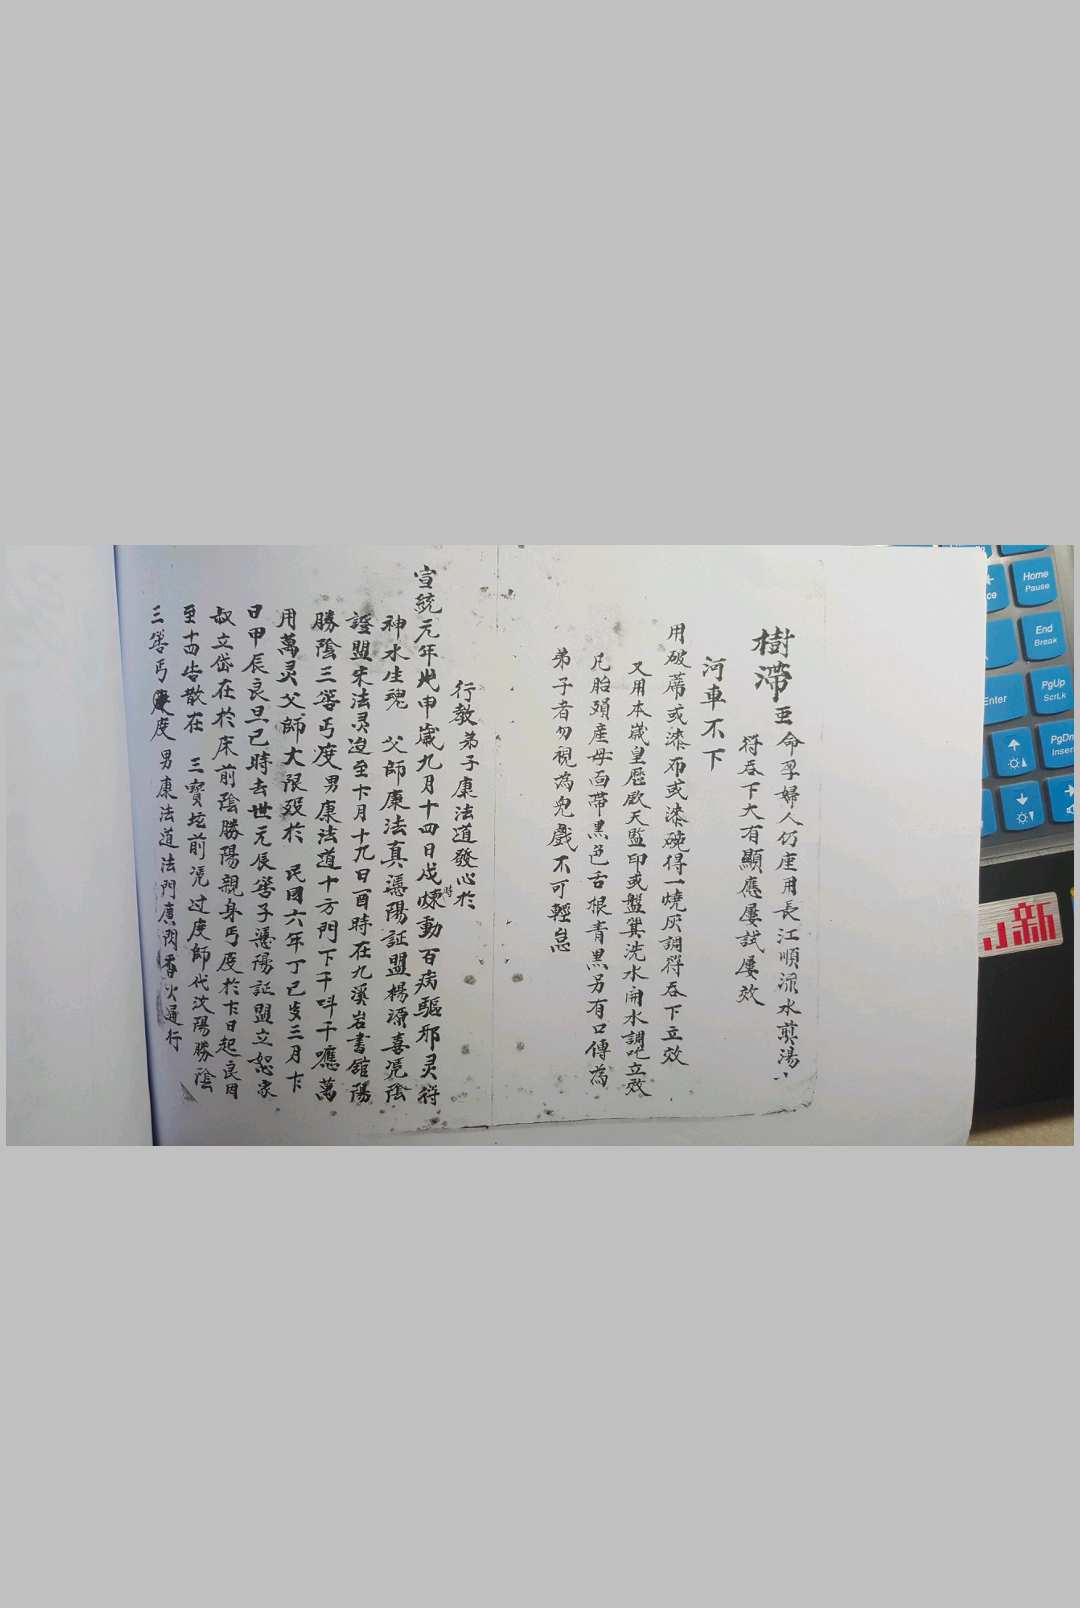 樹滯
命孕婦人仍座用長江順流水煎湯
符吞下大有顯應屢試屢效
河車不下
用破蓆或漆布或漆碗得一燒灰調符吞下立效
又用本歲皇歷欽天監印或盤箕洗水開水調吃立效
凡胎頭產母面帶黑色舌根青黑另有口傳為
弟子者勿視為兒戲不可輕怠
行教弟子康法道發心於
宣統元年戊申歲九月十四日戌時煉動百病驅邪灵符
神水生魂 父師康法真憑陽証盟楊源喜凭陰
證盟宋法灵沒至卞月十九日酉時在九溪岩書舘陽
勝陰三筶丐度男康法道十方門下千叫千應萬
用萬灵父師大限歿於 民囯六年丁巳岁三月卞
日甲辰良旦己時去世元辰筶子憑陽証盟立恕家
叔立岱在於床前陰勝陽親身丐度於卞日起良因
至十四告散在 三寶坛前凭过度師代汶陽勝陰
三筶丐度男康法道法門廣閙香火通行
Home
Pause
End
Break
Enter
PgUp
ScrLk
PgDn
Inser
小新